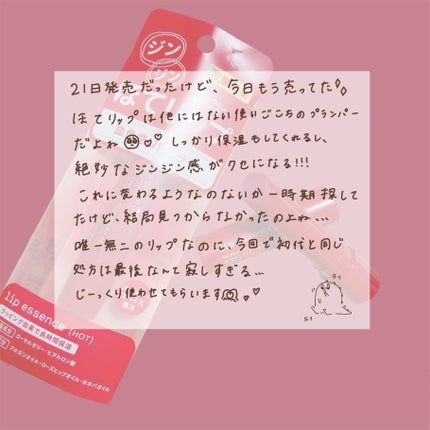 ジン
ジン
ほてり
21日発売だったけど、今日もう売ってた
ほてリップは他にはない使いごこちのプランパー
だよね しっかり保湿もしてくれるし、
絶妙なジンジン感がクセになる!!!
これに変わるようなのないか一時期探して
たけど、結局見つからなかったのよね...
唯一無二のリップなのに、今回で初代と同じ
処方は最後なんて寂しすぎる...
じーっくり使わせてもらいます
ヌリ
ヌリ
lip essence (HOT)
ラッピング効果で長時間保湿
ローヤルゼリー・ヒアルロン酸
アルガンオイル・ローズヒップオイル・ホホバオイル